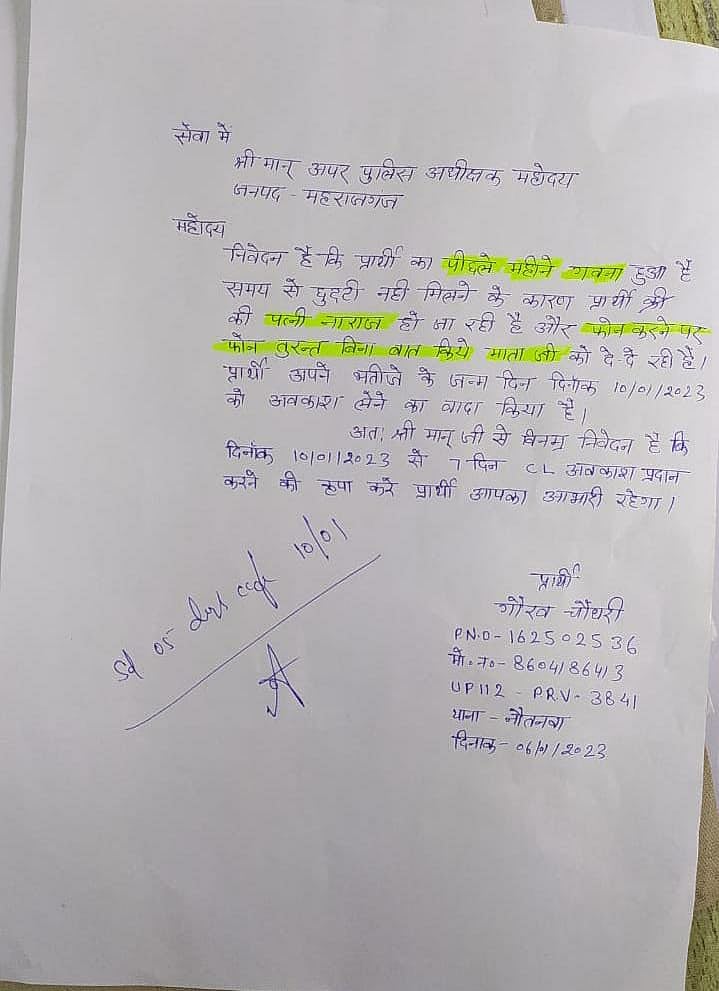 सेवा में
श्री मान् अपर पुलिस अधीक्षक महोदय
जनपद - महराजगंज
महोदय
निवेदन है कि प्रार्थी का पीछले महीने गवना हुआ है
समय से छुट्टी नही मिलने के कारण प्रार्थी श्री
की पत्नी नाराज हो जा रही है और फोन करने पर
फोन तुरन्त बिना बात किये माता जी को दे-दे रही है।
प्रार्थी अपने भतीजे के जन्म दिन दिनाँक 10/01/2023
को अवकाश लेने का वादा किया है।
अतः श्री मान् जी से विनम्र निवेदन है कि
दिनाँक 10/01/2023 से 7 दिन CL अवकाश प्रदान
करने की कृपा करे प्रार्थी आपका आभारी रहेगा।
प्रार्थी
गौरव चौधरी
P.N.O - 162502536
मो. न० - 8604186413
UP112 - PRV - 3841
थाना - नौतनवा
दिनाक - 06/01/2023
05
10/01